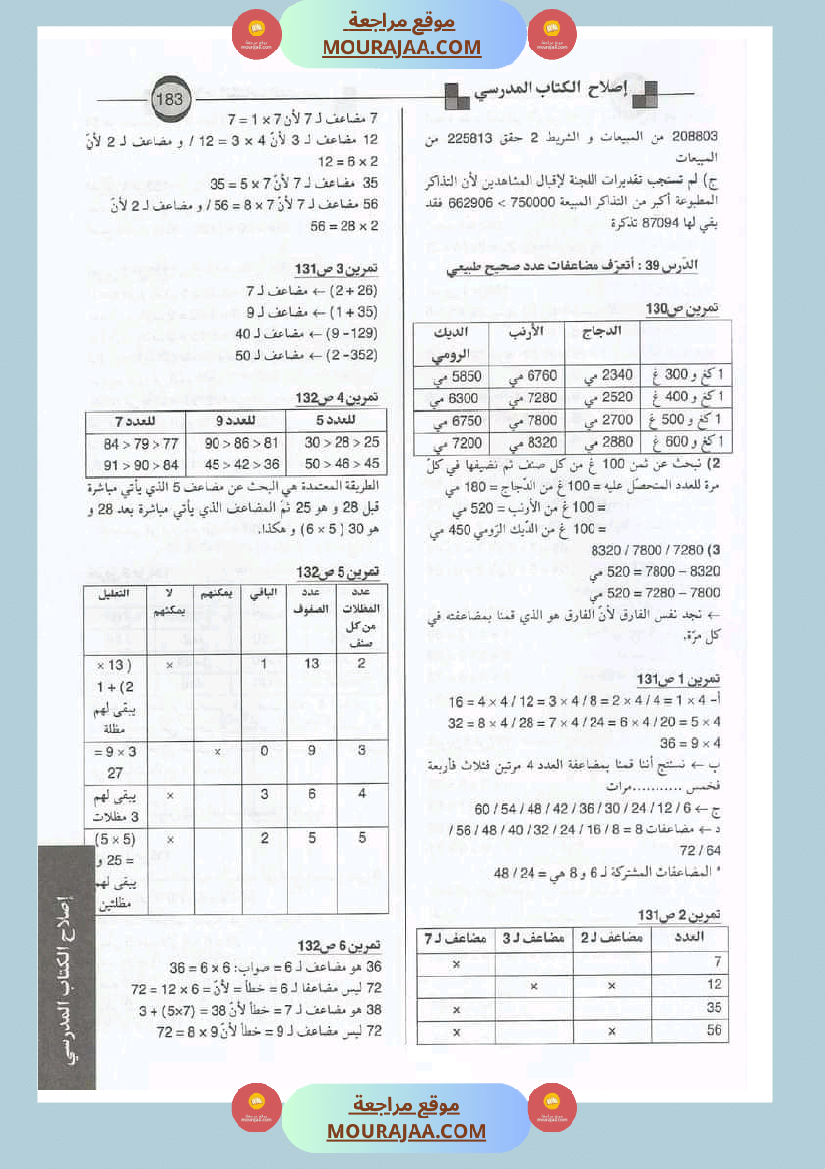 موقع مراجعة
MOURAJAA.COM
إصلاح الكتاب المدرسي
183
208803 من المبيعات و الشريط 2 حقق 225813 من
المبيعات
ج) لم تستجب تقديرات اللجنة لإقبال المشاهدين لأن التذاكر
المطبوعة أكبر من التذاكر المبيعة 750000 > 662906 فقد
بقي لها 87094 تذكرة
الدّرس 39 : أتعرّف مضاعفات عدد صحيح طبيعي
تمرين ص130
الدجاج الأرنب الديك الرومي
1 كغ و 300 غ 2340 مي 6760 مي 5850 مي
1 كغ و 400 غ 2520 مي 7280 مي 6300 مي
1 كغ و 500 غ 2700 مي 7800 مي 6750 مي
1 كغ و 600 غ 2880 مي 8320 مي 7200 مي
2) نبحث عن ثمن 100 غ من كل صنف ثم نضيفها في كلّ
مرة للعدد المتحصّل عليه = 100 غ من الدّجاج = 180 مي
= 100 غ من الأرنب = 520 مي
= 100 غ من الدّيك الرّومي 450 مي
3) 7280 / 7800 / 8320
8320 – 7800 = 520 مي
7800 – 7280 = 520 مي
← نجد نفس الفارق لأنّ الفارق هو الذي قمنا بمضاعفته في
كل مرّة.
تمرين 1 ص131
أ- 4 × 1 = 4 / 4 × 2 = 8 / 4 × 3 = 12 / 4 × 4 = 16
4 × 5 = 20 / 4 × 6 = 24 / 4 × 7 = 28 / 4 × 8 = 32
4 × 9 = 36
ب ← نستنتج أننا قمنا بمضاعفة العدد 4 مرتين فثلاث فأربعة
فخمس ...........مرات
ج ← 6 / 12 / 24 / 30 / 36 / 42 / 48 / 54 / 60
د ← مضاعفات 8 = 8 / 16 / 24 / 32 / 40 / 48 / 56 /
64 / 72
* المضاعفات المشتركة لـ 6 و 8 هي = 24 / 48
تمرين 2 ص131
العدد مضاعف لـ 2 مضاعف لـ 3 مضاعف لـ 7
7 ×
12 × ×
35 ×
56 × ×
7 مضاعف لـ 7 لأن 7 × 1 = 7
12 مضاعف لـ 3 لأنّ 4 × 3 = 12 / و مضاعف لـ 2 لأنّ
2 × 6 = 12
35 مضاعف لـ 7 لأنّ 7 × 5 = 35
56 مضاعف لـ 7 لأنّ 7 × 8 = 56 / و مضاعف لـ 2 لأنّ
2 × 28 = 56
تمرين 3 ص131
(26 + 2) ← مضاعف لـ 7
(35 + 1) ← مضاعف لـ 9
(129 - 9) ← مضاعف لـ 40
(352 - 2) ← مضاعف لـ 50
تمرين 4 ص132
للعدد 5 للعدد 9 للعدد 7
25 < 28 < 30 81 < 86 < 90 77 < 79 < 84
45 < 46 < 50 36 < 42 < 45 84 < 90 < 91
الطريقة المعتمدة هي البحث عن مضاعف 5 الذي يأتي مباشرة
قبل 28 و هو 25 ثمّ المضاعف الذي يأتي مباشرة بعد 28 و
هو 30 ( 5 × 6) و هكذا.
تمرين 5 ص132
عدد المظلات من كل صنف عدد الصفوف الباقي يمكنهم لا يمكنهم التعليل
2 13 1 × ( 13 × 2) + 1 يبقى لهم مظلة
3 9 0 × 3 × 9 = 27
4 6 3 × يبقى لهم 3 مظلات
5 5 2 × (5 × 5) = 25 و يبقى لهم مظلتين
تمرين 6 ص132
36 هو مضاعف لـ 6 = صواب: 6 × 6 = 36
72 ليس مضاعفا لـ 6 = خطأ = لأنّ = 6 × 12 = 72
38 هو مضاعف لـ 7 = خطأ لأنّ 38 = (7×5) + 3
72 ليس مضاعف لـ 9 = خطأ لأنّ 9 × 8 = 72
إصلاح الكتاب المدرسي
موقع مراجعة
MOURAJAA.COM